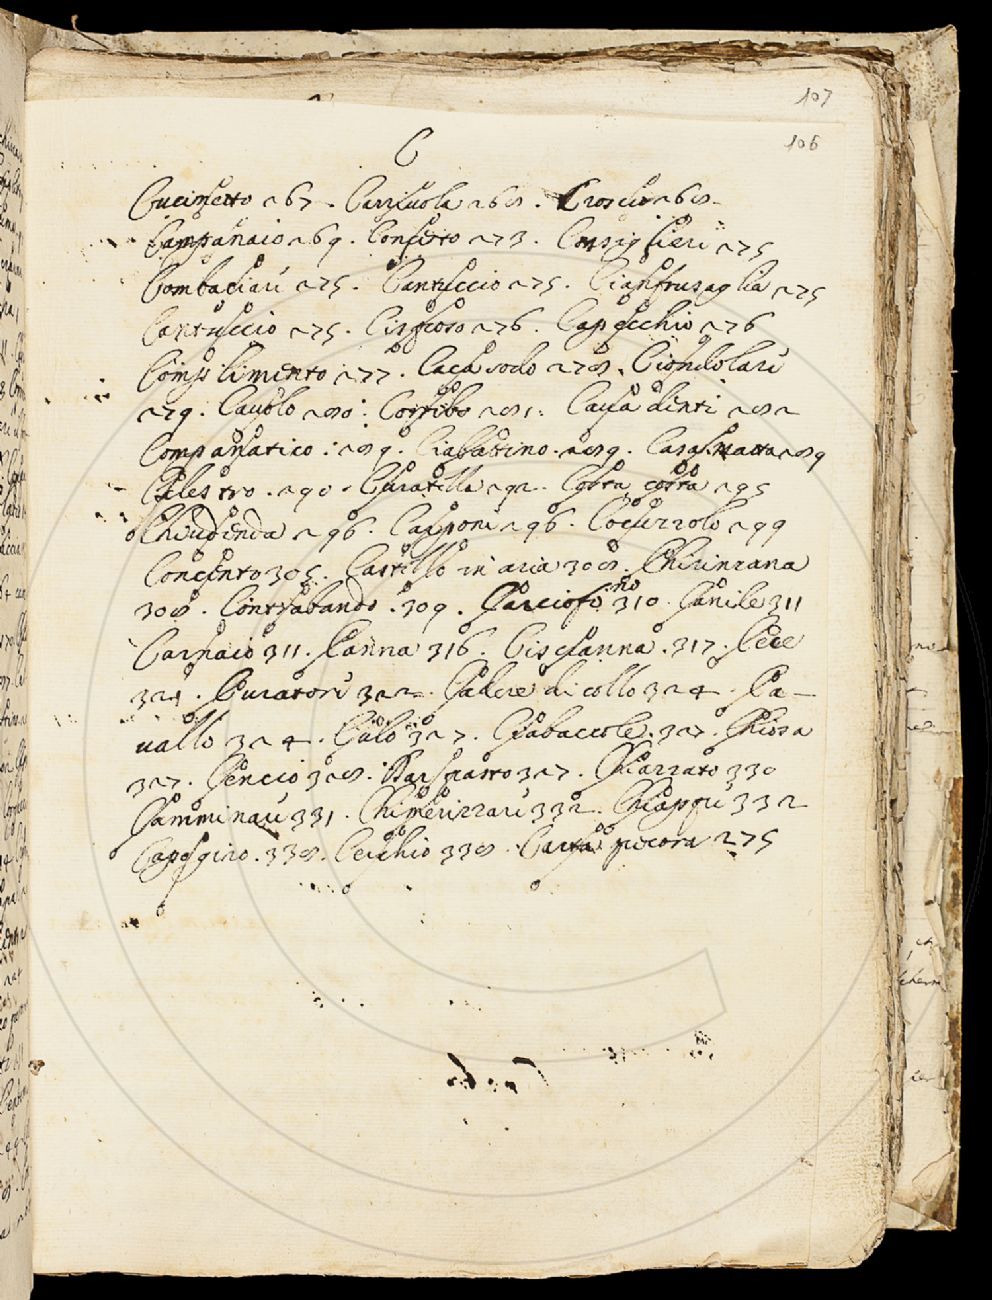 107
106
C
Cucinetto 267. Carriuola 268. Croscio 268.
Campanaio 269. Conserto 273. Consiglieri 275
Combaciari 275. Cantuccio 275. Cianfrusaglia 275
Cantuccio 275. Cisposo 276. Capocchio 276
Complimento 277. Cacasodo 278. Ciondolari
279. Cauolo 280. Corribo 281. Caua denti 282
Companatico: 289. Ciabattino. 289. Casamatta 289
Cilestro. 290. Curatella 292. Corra corra 295
Chiudenda 296. Capponi 296. Cocuzzolo 299
Concento 305. Castello in aria 308. Chirinzana
308. Contrabando. 309. Carciofino 310. Canile 311
Carnaio 311. Canna 316. Ciscranna. 317. Cece
321. Curatori 322. Cadere di collo 324. Ca-
uallo 324. Culo 327. Ciabaccole. 327. Chiosa
327. Cencio 328. 327. Chiazzato 330
Camminari 331. Chimerizzari 332. Chiappi 332
Capogiro. 338. Cerchio 338. Carta pecora 275